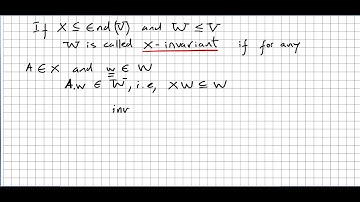 If X ⊆ End(V) and W ≤ V
W is called X-invariant if for any
A ∈ X and w ∈ W
A.w ∈ W, i.e, XW ⊆ W
inv